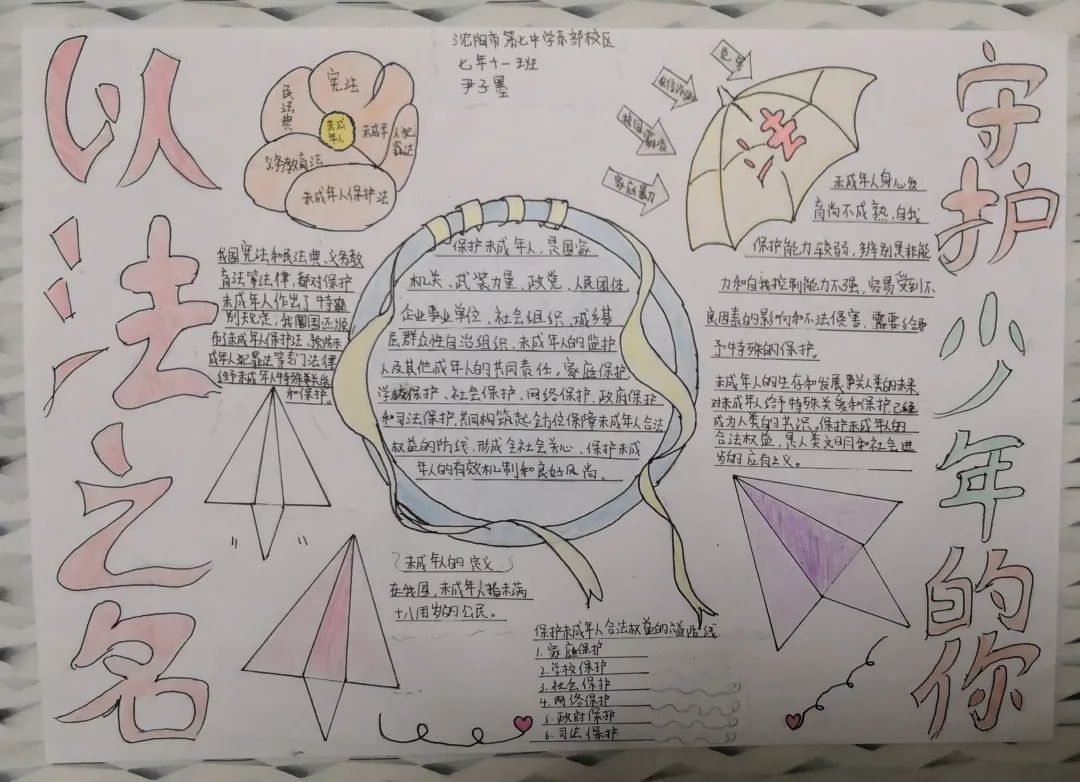 以
法
之
名
守
护
少
年
的
你
沈阳市第七中学东部校区
七年十一班
尹子墨
民法典
宪法
未成
年人
未成年人犯
罪法
义务教育法
未成年人保护法
危害
家庭暴力
法
我国宪法和民法典、义务教
育法等法律,都对保护
未成年人作出了特
别规定;我国还
制未成年人保护法、预防未
成年人犯罪法等专门法律
给予未成年人特殊关
和保护。
保护未成年人,是国家
机关、武装力量、政党、人民团体
企业事业单位、社会组织、城乡基
层群众性自治组织、未成年人的监护
人及其他成年人的共同责任。家庭保护
学校保护、社会保护、网络保护、政府保护
和司法保护,共同构筑起全方位保障未成年人合法
权益的防线,形成全社会关心、保护未成
年人的有效机制和良好风尚。
未成年人身心发
育尚不成熟,自我
保护能力较弱,辨别是非能
力和自我控制能力不强,容易受到不
良因素的影响和不法侵害,需要给
予特殊的保护。
未成年人的生存和发展事关人类的未来
对未成年人给予特殊关爱和保护,已经
成为人类的共识。保护未成年人的
合法权益,是人类文明和社会进
步的应有之义。
未成年人的定义
在我国,未成年人指未满
十八周岁的公民。
保护未成年人合法权益的六道防线
1.家庭保护
2.学校保护
3.社会保护
4.网络保护
5.政府保护
6.司法保护